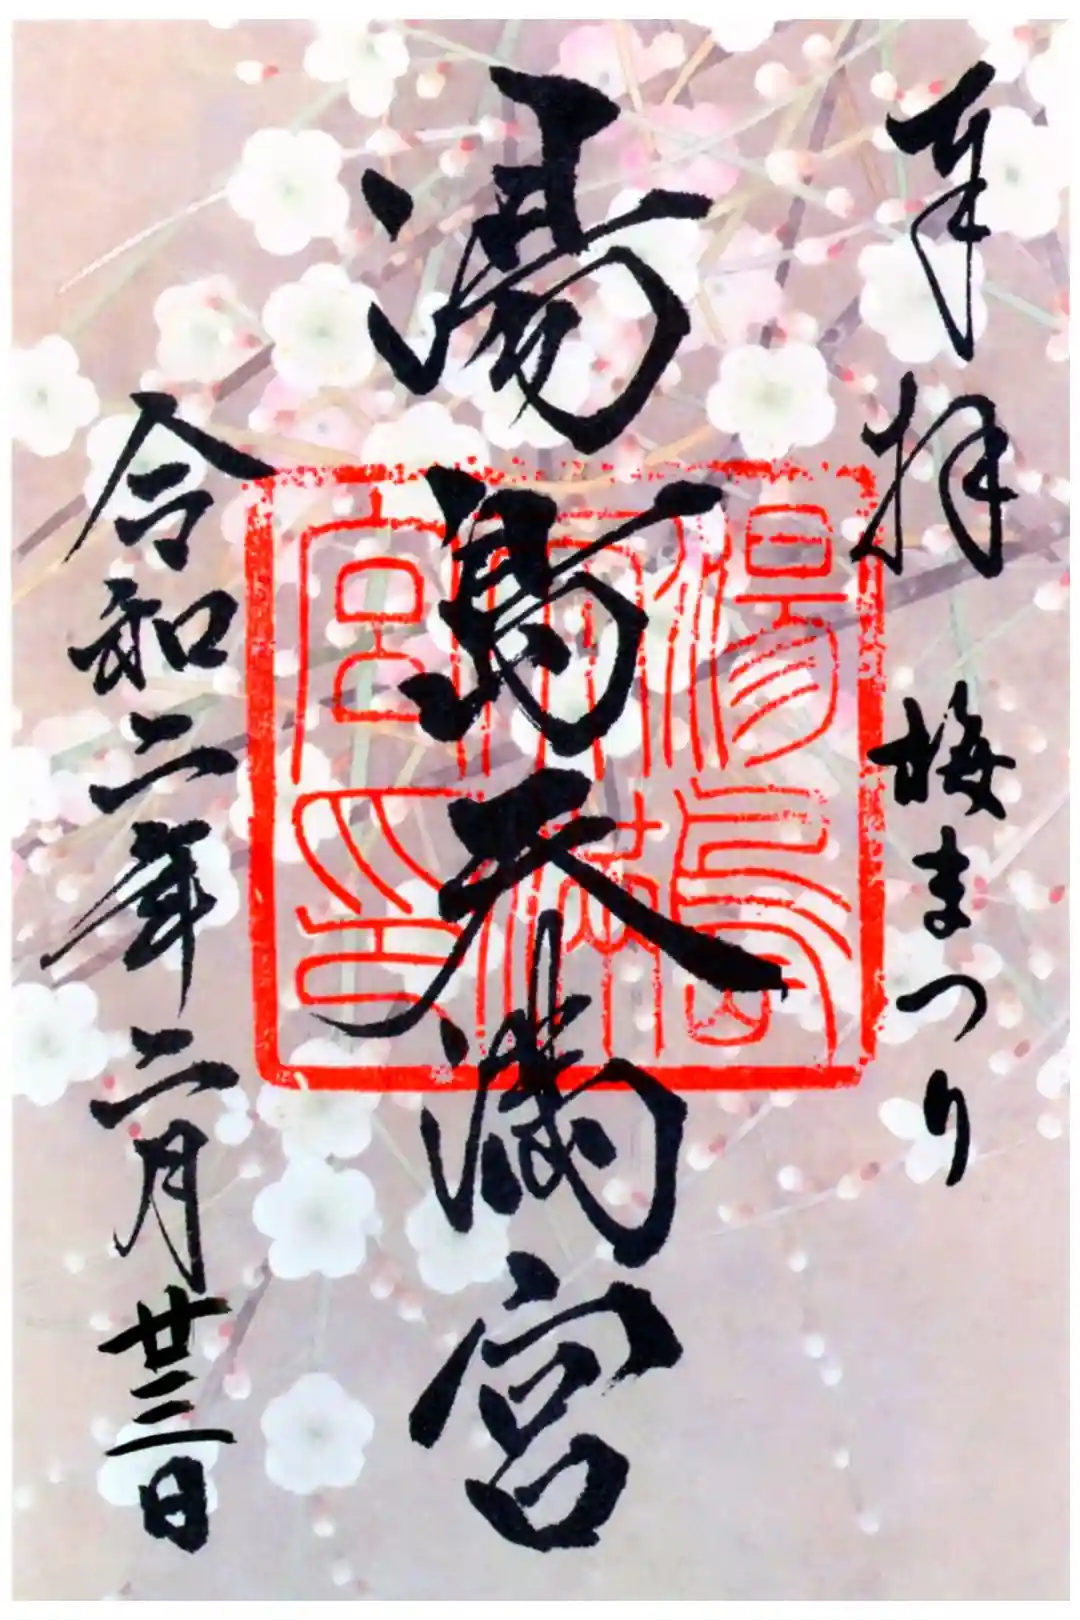 奉拝 梅まつり
湯島天満宮
湯島天満宮印
令和二年二月廿三日